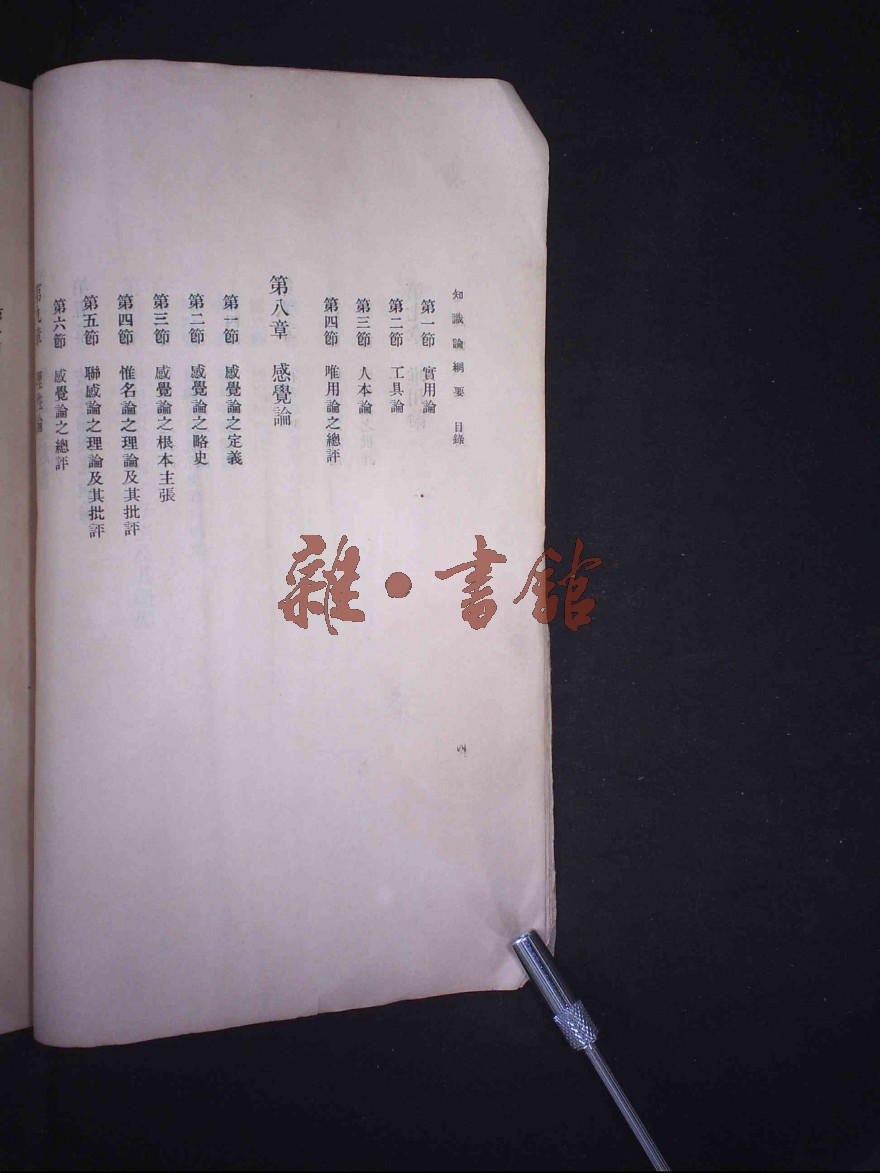 知識論綱要 目錄
第一節 實用論
第二節 工具論
第三節 人本論
第四節 唯用論之總評
第八章 感覺論
第一節 感覺論之定義
第二節 感覺論之略史
第三節 感覺論之根本主張
第四節 惟名論之理論及其批評
第五節 聯感論之理論及其批評
第六節 感覺論之總評
第九章
四
雜·書館